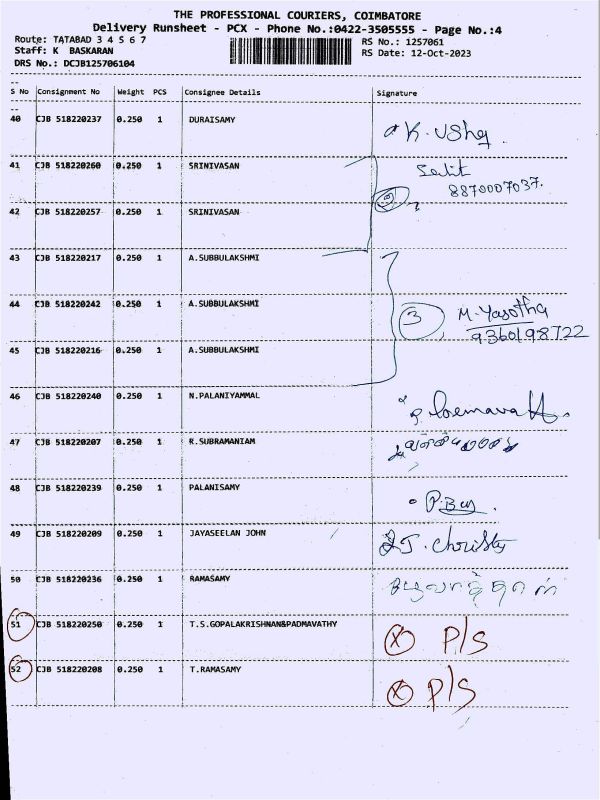 THE PROFESSIONAL COURIERS, COIMBATORE
Delivery Runsheet - PCX - Phone No.:0422-3505555 - Page No.:4
Route: TATABAD 3 4 5 6 7
RS No.: 1257061
Staff: K BASKARAN
RS Date: 12-Oct-2023
DRS No.: DCJB125706104
S No Consignment No Weight PCS Consignee Details Signature
40 CJB 518220237 0.250 1 DURAISAMY K. Usha
41 CJB 518220260 0.250 1 SRINIVASAN
8870007037.
42 CJB 518220257 0.250 1 SRINIVASAN 2
43 CJB 518220217 0.250 1 A.SUBBULAKSHMI
44 CJB 518220242 0.250 1 A.SUBBULAKSHMI 3 M. Yasotha
9360198722
45 CJB 518220216 0.250 1 A.SUBBULAKSHMI
46 CJB 518220240 0.250 1 N.PALANIYAMMAL
47 CJB 518220207 0.250 1 K.SUBRAMANIAM
48 CJB 518220239 0.250 1 PALANISAMY
49 CJB 518220209 0.250 1 JAYASEELAN JOHN J. Christy
50 CJB 518220236 0.250 1 RAMASAMY
51 CJB 518220250 0.250 1 T.S.GOPALAKRISHNAN&PADMAVATHY X P/S
52 CJB 518220208 0.250 1 T.RAMASAMY X P/S